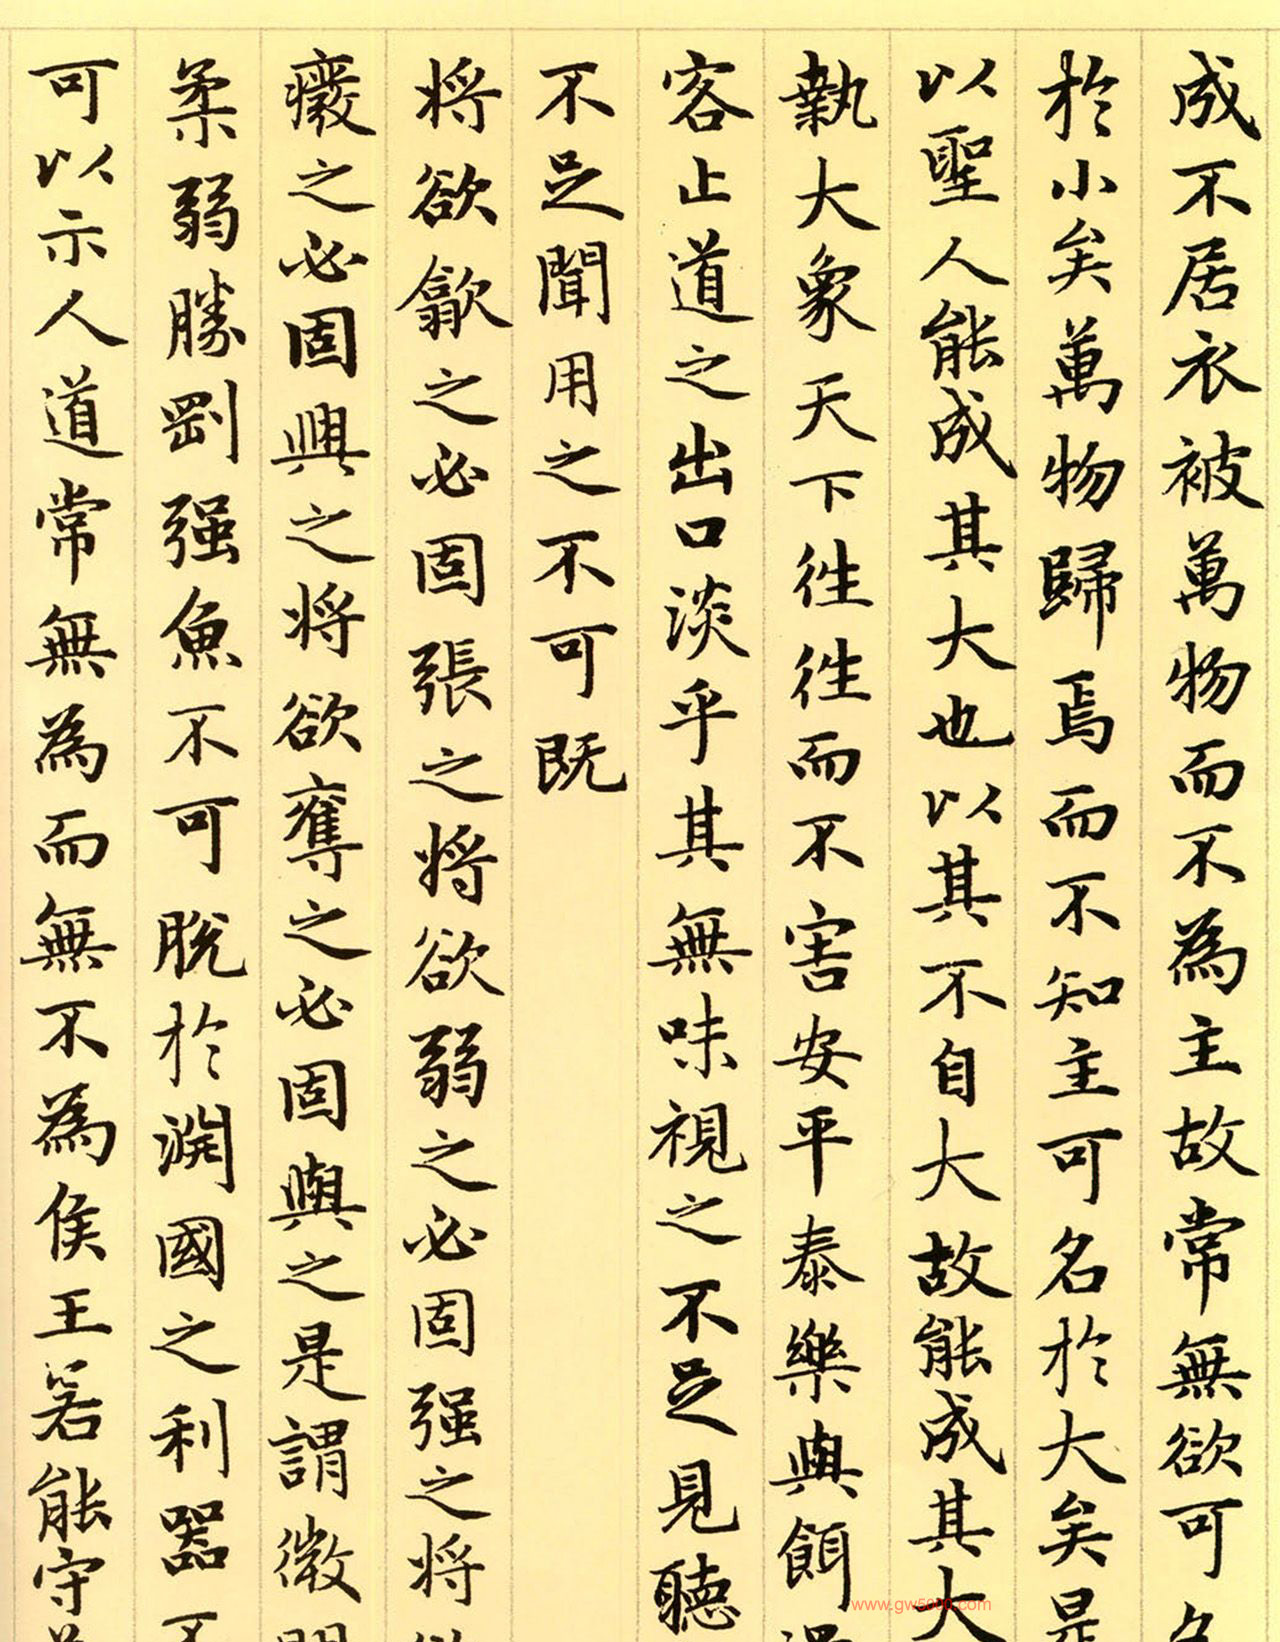 成不居衣被萬物而不為主故常無欲可名
於小矣萬物歸焉而不知主可名於大矣是
以聖人能成其大也以其不自大故能成其大
執大象天下往往而不害安平泰樂與餌過
客止道之出口淡乎其無味視之不足見聽
不足聞用之不可既
將欲歙之必固張之將欲弱之必固强之將
癈之必固興之將欲奪之必固與之是謂微明
柔弱勝剛强魚不可脫於淵國之利器不
可以示人道常無為而無不為侯王若能守
www.gw5000.com